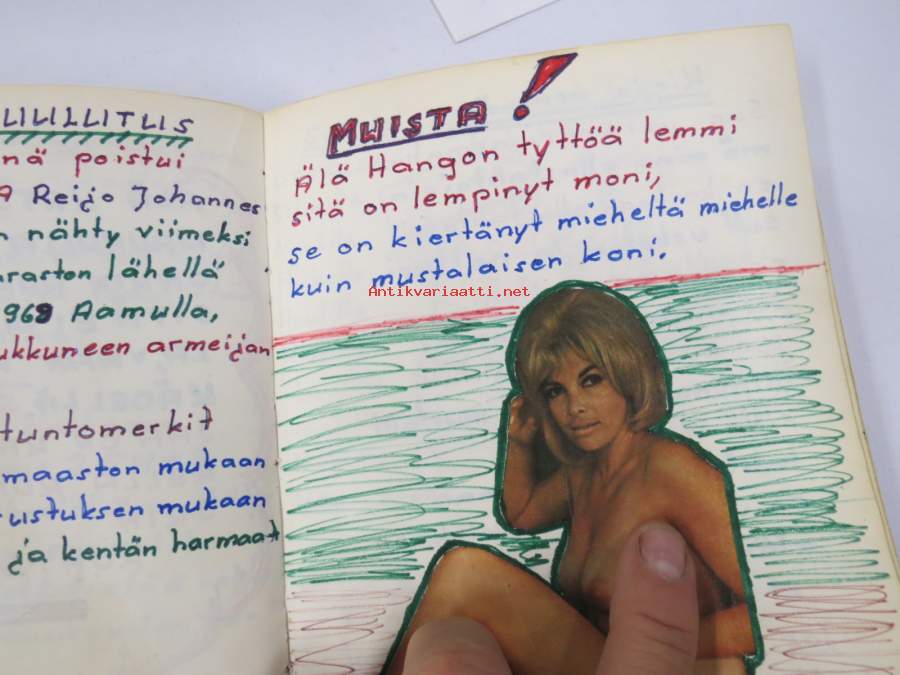 LILILLITUS
nä poistui
A Reijo Johannes
n nähty viimeksi
araston lähellä
968 Aamulla,
ukkuneen armeijan
tuntomerkit
maaston mukaan
ustuksen mukaan
ja kentän harmaat
MUISTA!
Älä Hangon tyttöä lemmi
sitä on lempinyt moni,
se on kiertänyt mieheltä miehelle
kuin mustalaisen koni.
Antikvariaatti.net